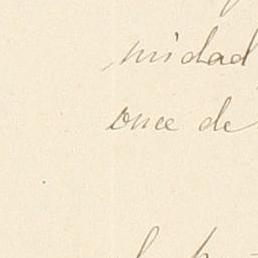 midad
once de